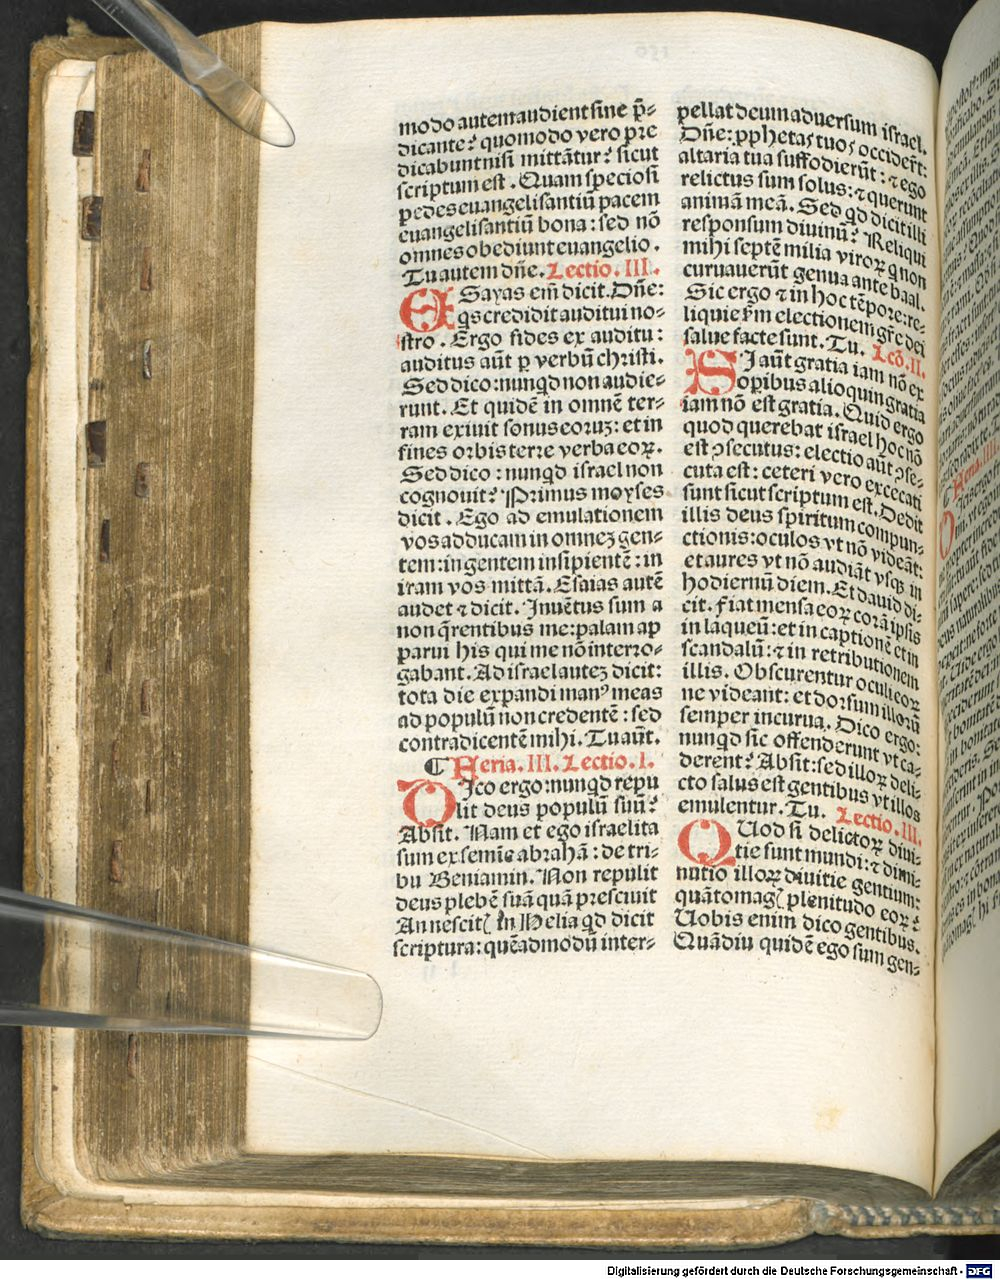 modo autem audient sine p̄-
dicante? quomodo vero pre
dicabunt nisi mittātur? sicut
scriptum est. Quam speciosi
pedes euangelisantiū pacem
euangelisantiū bona: sed nō
omnes obediunt euangelio.
Tu autem dn̄e. Lectio. III.
ESayas em̄ dicit. Dn̄e:
qs credidit auditui no-
stro. Ergo fides ex auditu:
auditus aūt ꝑ verbū christi.
Sed dico: nunqd non audie-
runt. Et quidē in omnē ter-
ram exiuit sonus eoruz: et in
fines orbis terre verba eoꝝ.
Sed dico: nunqd israel non
cognouit? Primus moyses
dicit. Ego ad emulationem
vos adducam in omnez gen-
tem: in gentem insipientē: in
iram vos mittā. Esaias autē
audet ⁊ dicit. Inuētus sum a
non q̄rentibus me: palam ap
parui his qui me nō interro-
gabant. Ad israel autez dicit:
tota die expandi manꝰ meas
ad populū non credentē: sed
contradicentē mihi. Tu aūt.
¶ Feria. III. Lectio. I.
DIco ergo: nunqd repu
lit deus populū suū?
Absit. Nam et ego israelita
sum ex semīe abrahā: de tri-
bu Beniamin. Non repulit
deus plebē suā quā presciuit
An nescitꝭ in Helia qd dicit
scriptura: quēadmodū inter-
pellat deum aduersum israel.
Dn̄e: ꝓphetas tuos occiderūt:
altaria tua suffoderūt: ⁊ ego
relictus sum solus: ⁊ querunt
animā meā. Sed qd dicit illi
responsum diuinū? Reliqui
mihi septē milia viroꝝ q non
curuauerūt genua ante baal.
Sic ergo ⁊ in hoc tēpore: re-
liquie ẜm electionem gr̄e dei
salue facte sunt. Tu. Lcō. II.
SI aūt gratia iam nō ex
operibus alioquin gratia
iam nō est gratia. Quid ergo
quod querebat israel hoc nō
est ↄsecutus: electio aūt ↄse-
cuta est: ceteri vero excecati
sunt sicut scriptum est. Dedit
illis deus spiritum compun-
ctionis: oculos vt nō videāt:
et aures vt nō audiāt vsqꝫ in
hodiernū diem. Et dauid di-
cit. Fiat mensa eoꝝ corā ipsis
in laqueū: et in captionē et in
scandalū: ⁊ in retributionem
illis. Obscurentur oculi eoꝝ
ne videant: et dorsum illorū
semper incurua. Dico ergo:
nunqd sic offenderunt vt ca-
derent? Absit: sed illoꝝ deli-
cto salus est gentibus vt illos
emulentur. Tu. Lectio. III.
QUod si delictoꝝ diui-
tie sunt mundi: ⁊ dimi-
nutio illoꝝ diuitie gentium:
quātomagꝭ plenitudo eoꝝ?
Uobis enim dico gentibus.
Quādiu quidē ego sum gen-
Digitalisierung gefördert durch die Deutsche Forschungsgemeinschaft - DFG